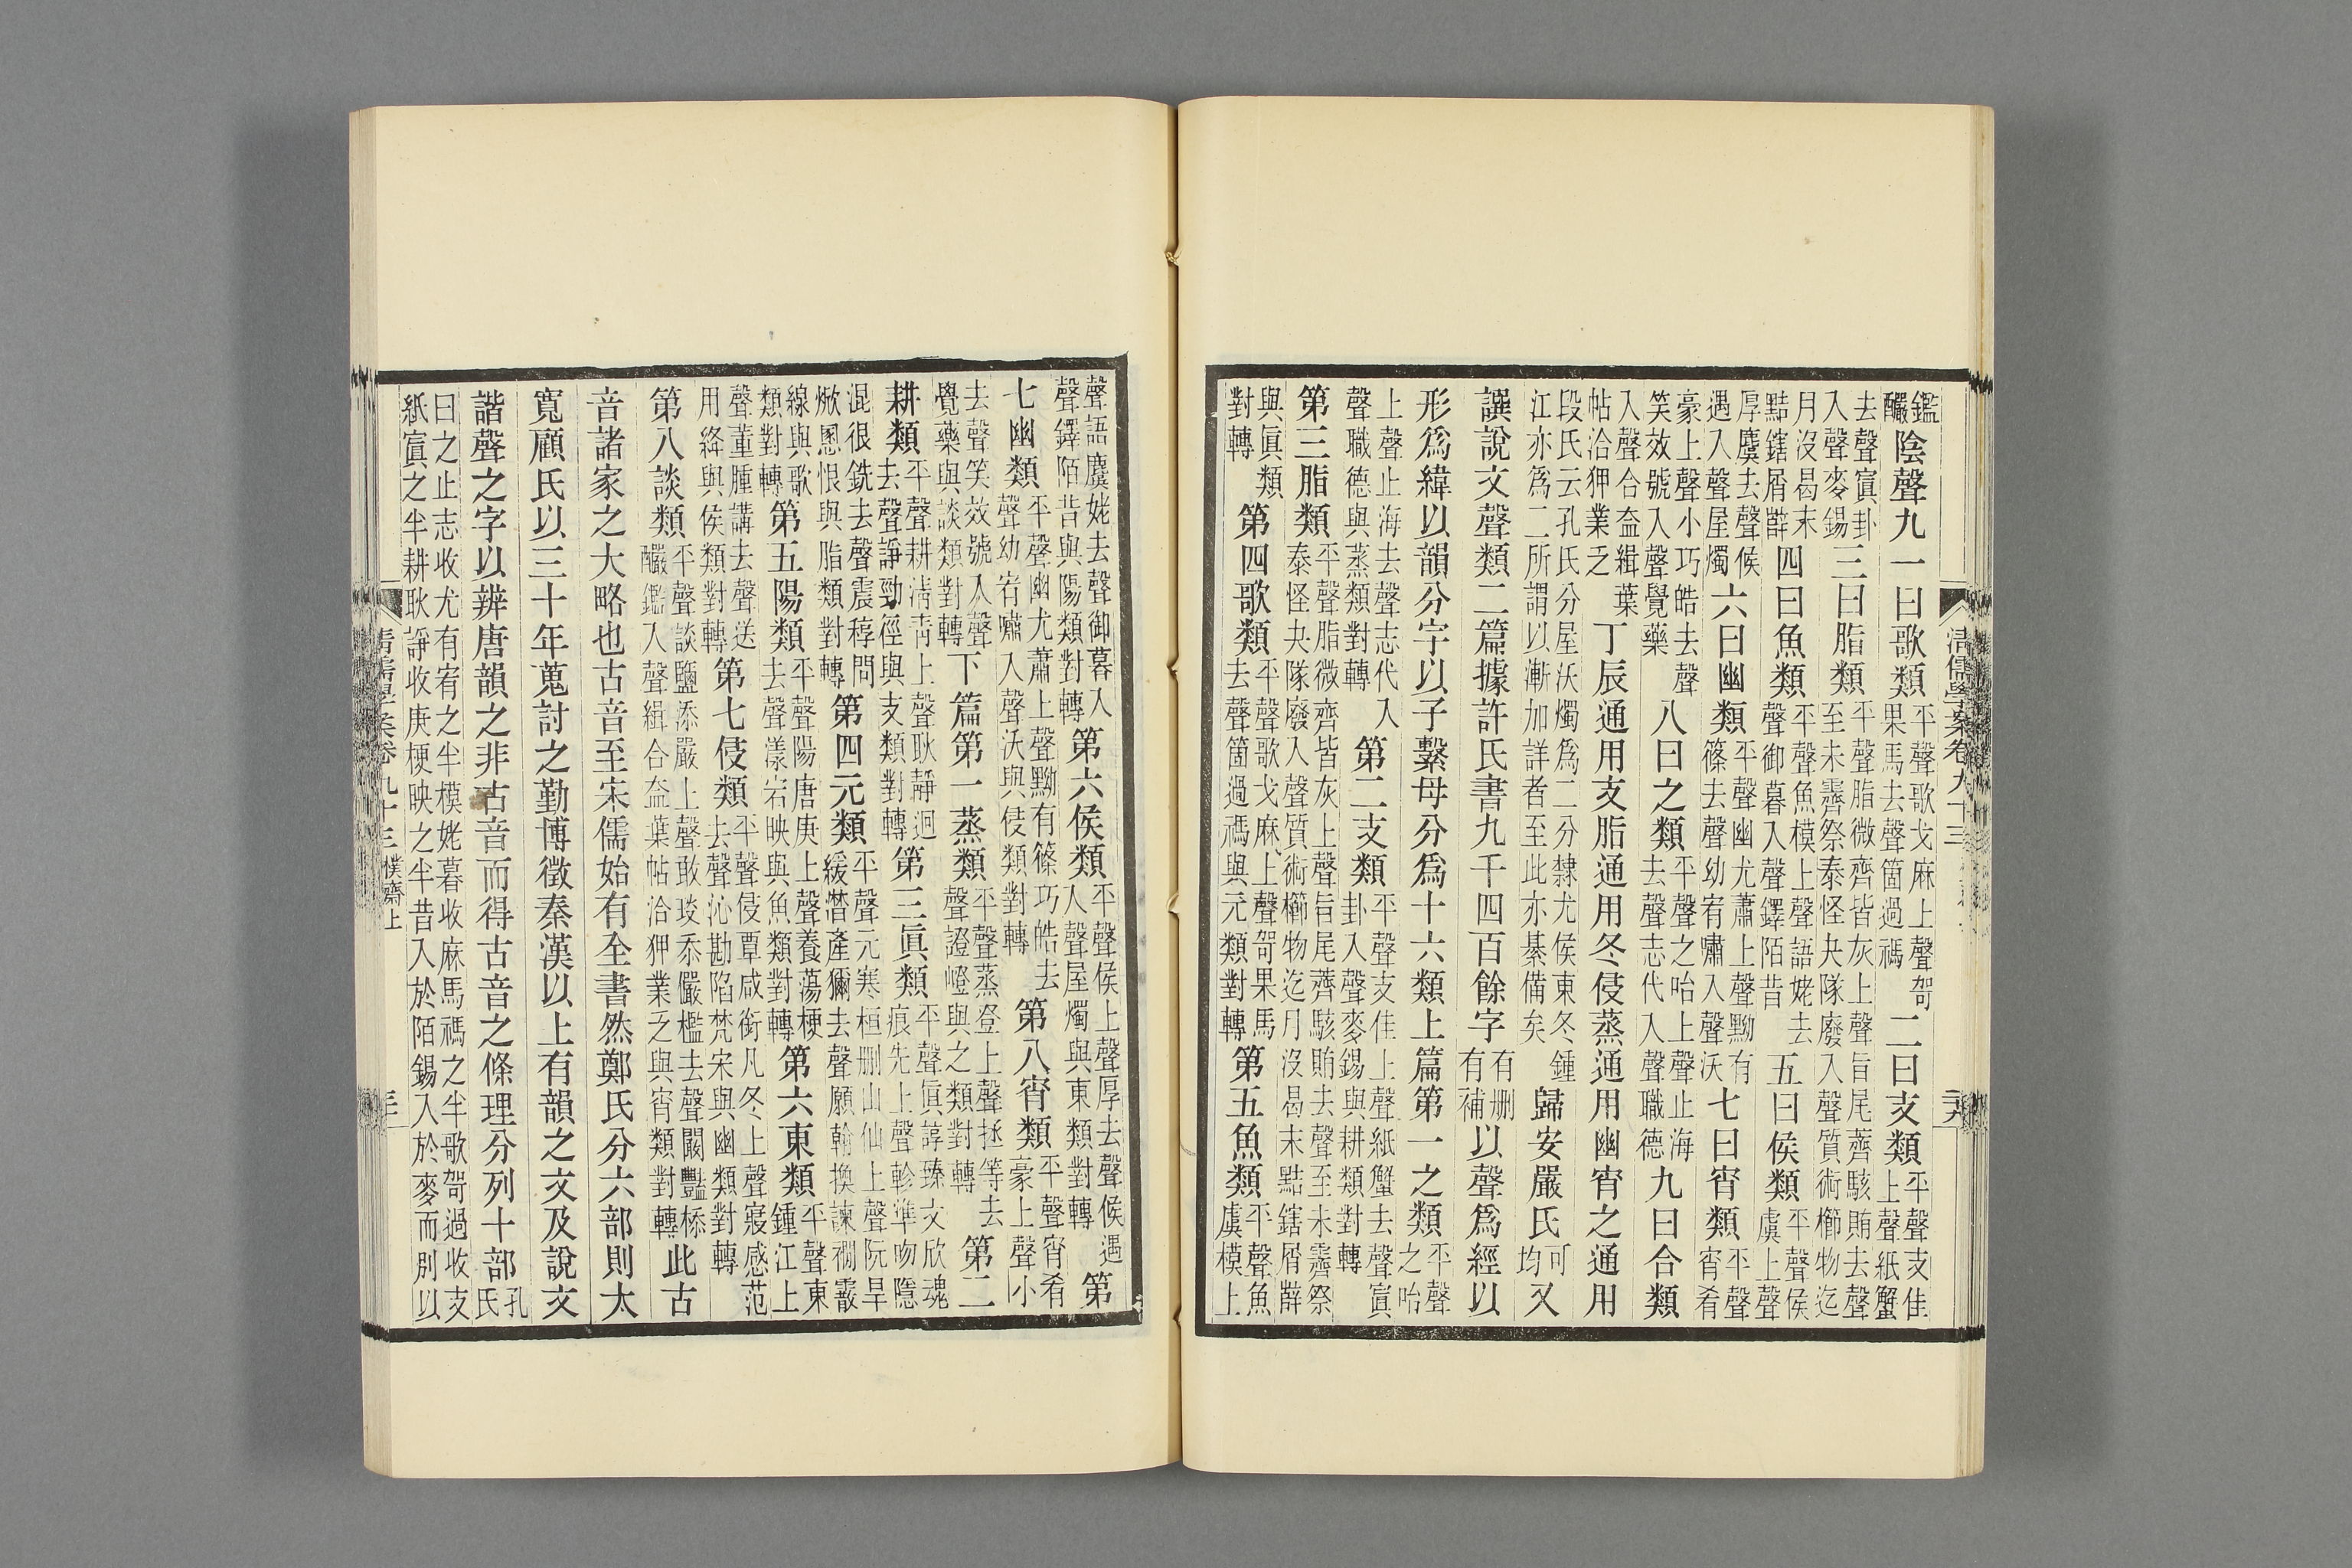 鑑釅陰聲九一曰歌類平聲歌戈麻上聲哿果馬去聲箇過禡二曰支類平聲支佳上聲紙蟹
去聲寘卦入聲麥錫三曰脂類平聲脂微齊皆灰上聲旨尾薺駭賄去聲至未霽祭泰怪夬隊廢入聲質術櫛物迄
月沒曷末黠鎋屑薛四曰魚類平聲魚模上聲語姥去聲御暮入聲鐸陌昔五曰侯類平聲侯虞上聲
厚麌去聲候遇入聲屋燭六曰幽類平聲幽尤蕭上聲黝有篠去聲幼宥嘯入聲沃七曰宵類平聲宵肴
豪上聲小巧皓去聲笑效號入聲覺藥八曰之類平聲之咍上聲止海去聲志代入聲職德九曰合類
入聲合盍緝葉帖洽狎業乏丁辰通用支脂通用冬侵蒸通用幽宵之通用
段氏云孔氏分屋沃燭爲二分隸尤侯東冬鍾江亦爲二所謂以漸加詳者至此亦綦備矣歸安嚴氏可均又
譔說文聲類二篇據許氏書九千四百餘字有刪有補以聲爲經以
形爲緯以韻分字以子繫母分爲十六類上篇第一之類平聲之咍
上聲止海去聲志代入聲職德與蒸類對轉第二支類平聲支佳上聲紙蟹去聲寘卦入聲麥錫與耕類對轉
第三脂類平聲脂微齊皆灰上聲旨尾薺駭賄去聲至未霽祭泰怪夬隊廢入聲質術櫛物迄月沒曷末黠鎋屑薛
與眞類對轉第四歌類平聲歌戈麻上聲哿果馬去聲箇過禡與元類對轉第五魚類平聲魚虞模上
清儒學案卷九十三
聲語麌姥去聲御暮入聲鐸陌昔與陽類對轉第六侯類平聲侯上聲厚去聲候遇入聲屋燭與東類對轉第
七幽類平聲幽尤蕭上聲黝有篠巧皓去聲幼宥嘯入聲沃與侵類對轉第八宵類平聲宵肴豪上聲小
去聲笑效號入聲覺藥與談類對轉下篇第一蒸類平聲蒸登上聲拯等去聲證嶝與之類對轉第二
耕類平聲耕淸靑上聲耿靜迥去聲諍勁徑與支類對轉第三眞類平聲眞諄臻文欣魂痕先上聲軫準吻隱
混很銑去聲震稕問焮慁恨與脂類對轉第四元類平聲元寒桓刪山仙上聲阮旱緩潸產獮去聲願翰換諫襇霰
線與歌類對轉第五陽類平聲陽唐庚上聲養蕩梗去聲漾宕映與魚類對轉第六東類平聲東鍾江上
聲董腫講去聲送用絳與侯類對轉第七侵類平聲侵覃咸銜凡冬上聲寑感范去聲沁勘陷梵宋與幽類對轉
第八談類平聲談鹽添嚴上聲敢琰忝儼檻去聲闞豔㮇釅鑑入聲緝合盍葉帖洽狎業乏與宵類對轉此古
音諸家之大略也古音至宋儒始有全書然鄭氏分六部則太
寬顧氏以三十年蒐討之勤博徵秦漢以上有韻之文及說文
諧聲之字以辨唐韻之非古音而得古音之條理分列十部孔氏
曰之止志收尤有宥之半模姥暮收麻馬禡之半歌哿過收支紙寘之半耕耿諍收庚梗映之半昔入於陌錫入於麥而別以
清儒學案卷九十三 樸齋上